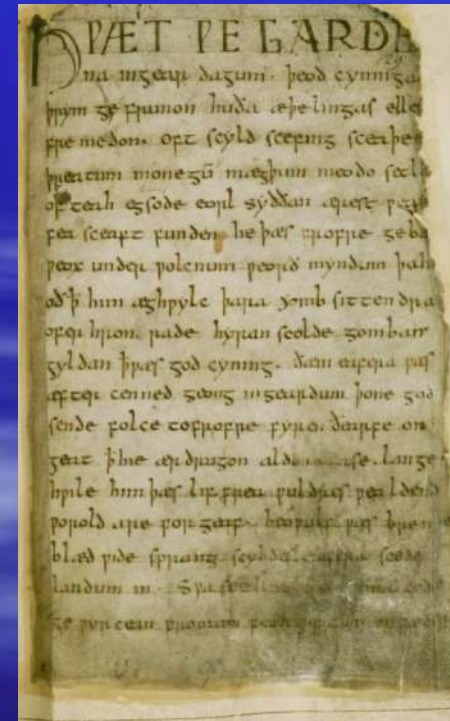 HǷÆT ǷE GARDE
na ingear dagum. þeod cyninga
þrym ge frunon huða æþelingas elle
fre medon. oft scyld scefing sceaþe
þreatum monegū mægþum meodo setl
of teah egsode eorl syððan ærest ƿe
fea sceaft funden he þæs frofre geba
ƿeox under ƿolcnum ƿeorð myndum þah
oð ꝥ him æghƿylc þara ymb sittendra
ofer hron rade hyran scolde gomban
gyldan ꝥ ƿæs god cyning. ðæm eafera ƿæs
æfter cenned geong ingeardum þone god
sende folce tofrofre fyren ðearfe on
geat ꝥ hie ær drugon aldor ase. lange
hƿile him þæs lif frea ƿuldres ƿealdend
ƿorold are for geaf. beoƿulf ƿæs breme
blæd ƿide sprang scyldes eafera scede
landum in. Sƿa
ge ƿyrcean fromum